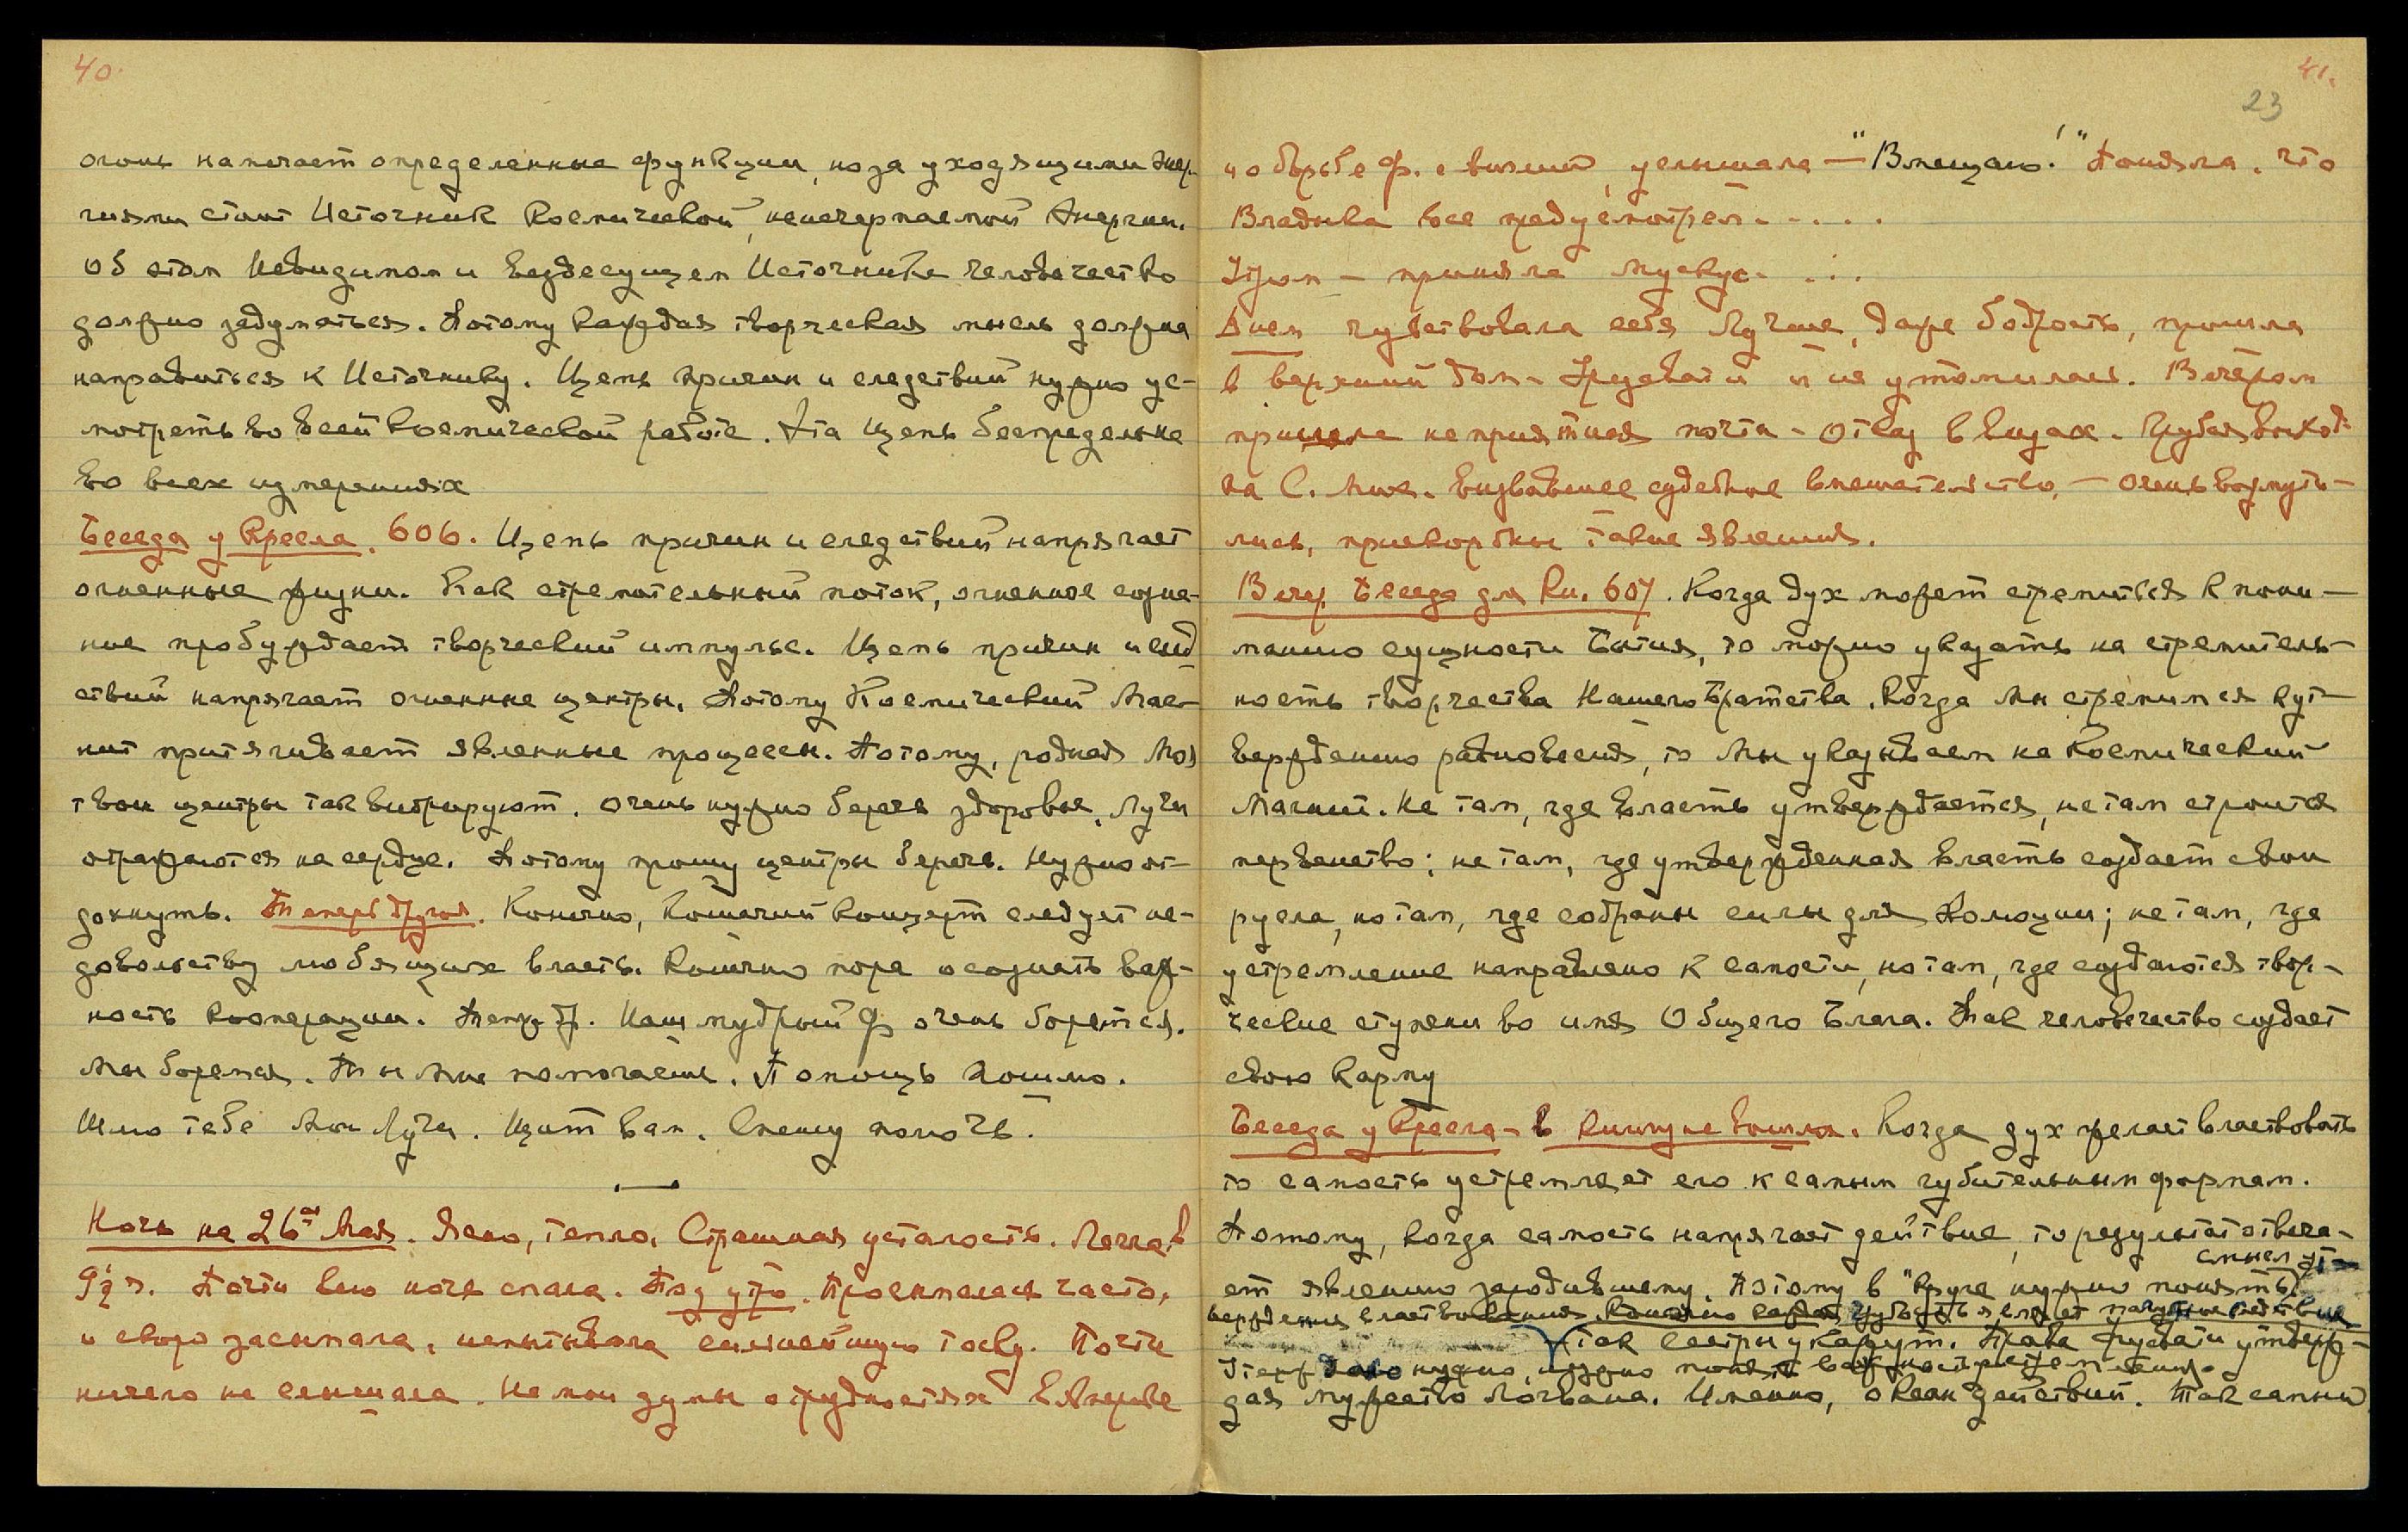 40.
огонь напитает определенные функции, но за уходящими энер-
гиями стоит Источник Космической, неисчерпаемой Энергии.
Об этом Невидимом и Вездесущем Источнике человечество
должно задуматься. Потому каждая творческая мысль должна
направиться к Источнику. Цепь причин и следствий нужно ус-
мотреть во всей космической работе. Эта цепь беспредельна
во всех измерениях
Беседа у Кресла. 606. Цепь причин и следствий напрягает
огненные жизни. Как стремительный поток, огненное созна-
ние пробуждает творческий импульс. Цепь причин и след-
ствий напрягает огненные центры. Потому Космический Маг-
нит притягивает явленные процессы. Потому, родная Моя
твои центры так вибрируют. Очень нужно беречь здоровье. Лучи
отражаются на сердце. Потому прошу центры беречь. Нужно от-
дохнуть. Теперь другое. Конечно, кошачий концерт следует не-
довольству любящих власть. Конечно пора осознать важ-
ность кооперации. Теперь др. Наш мудрый Ф очень борется.
Мы боремся. Ты Мне помогаешь. Помощь пошлю.
Шлю тебе Мои Лучи. Щит вам. Спешу помочь.
Ночь на 26ое Мая. Ясно, тепло. Страшная усталость. Легла в
9½ ч. Почти всю ночь спала. Под утро. Просыпалась часто,
и скоро засыпала, испытывала сильнейшую тоску. Почти
ничего не слышала. На мои думы о трудностях в Америке
41.
23
и о борьбе Ф. с визой, услышала — "Вмещаю!" Поняла, что
Владыка все предусмотрел.....
Утром — приняла мускус....
Днем чувствовала себя лучше, даже бодрость, прошла
в верхний дом - Урусвати и не утомилась. Вечером
пришла неприятная почта - отказ в визах. Грубая выход-
ка С. Мих. вызвавшее судебное вмешательство, — очень возмути-
лись, прискорбны такие явления.
Веч. Беседа для Кн. 607. Когда дух может стремиться к пони-
манию сущности Бытия, то можно указать на стремитель-
ность творчества Нашего Братства. Когда Мы стремимся к ут-
верждению равновесия, то Мы указываем на Космический
Магнит. Не там, где власть утверждается, не там строится
первенство; не там, где утвержденная власть создает свои
русла, но там, где собраны силы для эволюции; не там, где
устремление направлено к самости, но там, где создаются твор-
ческие ступени во имя Общего Блага. Так человечество создает
свою карму
Беседа у Кресла - в книгу не вошло. Когда дух желает властвовать
то самость устремляет его к самым губительным формам.
Потому, когда самость напрягает действие, то результат отвеча-
ет явлению зародившему. Поэтому в "Круге нужно понять
смысл ут-
верждения властвования. Конечно
Так сестры укажут. Права Урусвати утверж-
нужно, нужно понять важность
дая мужество Логвана. Именно, океан действий. Так самый